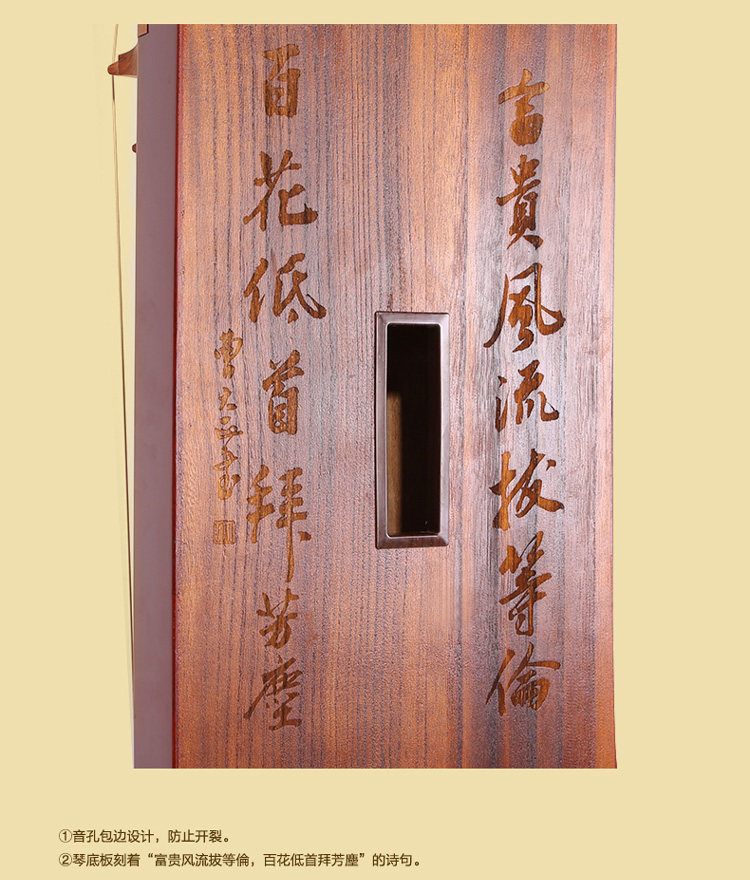 富貴風流拔等倫
百花低首拜芳塵
曹大 書
①音孔包边设计，防止开裂。
②琴底板刻着“富贵风流拔等倫，百花低首拜芳塵”的诗句。